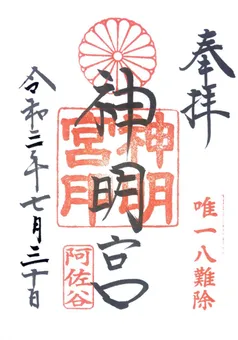 奉拝
唯一八難除
神明宮
神明宮
阿佐谷
令和三年七月三十日